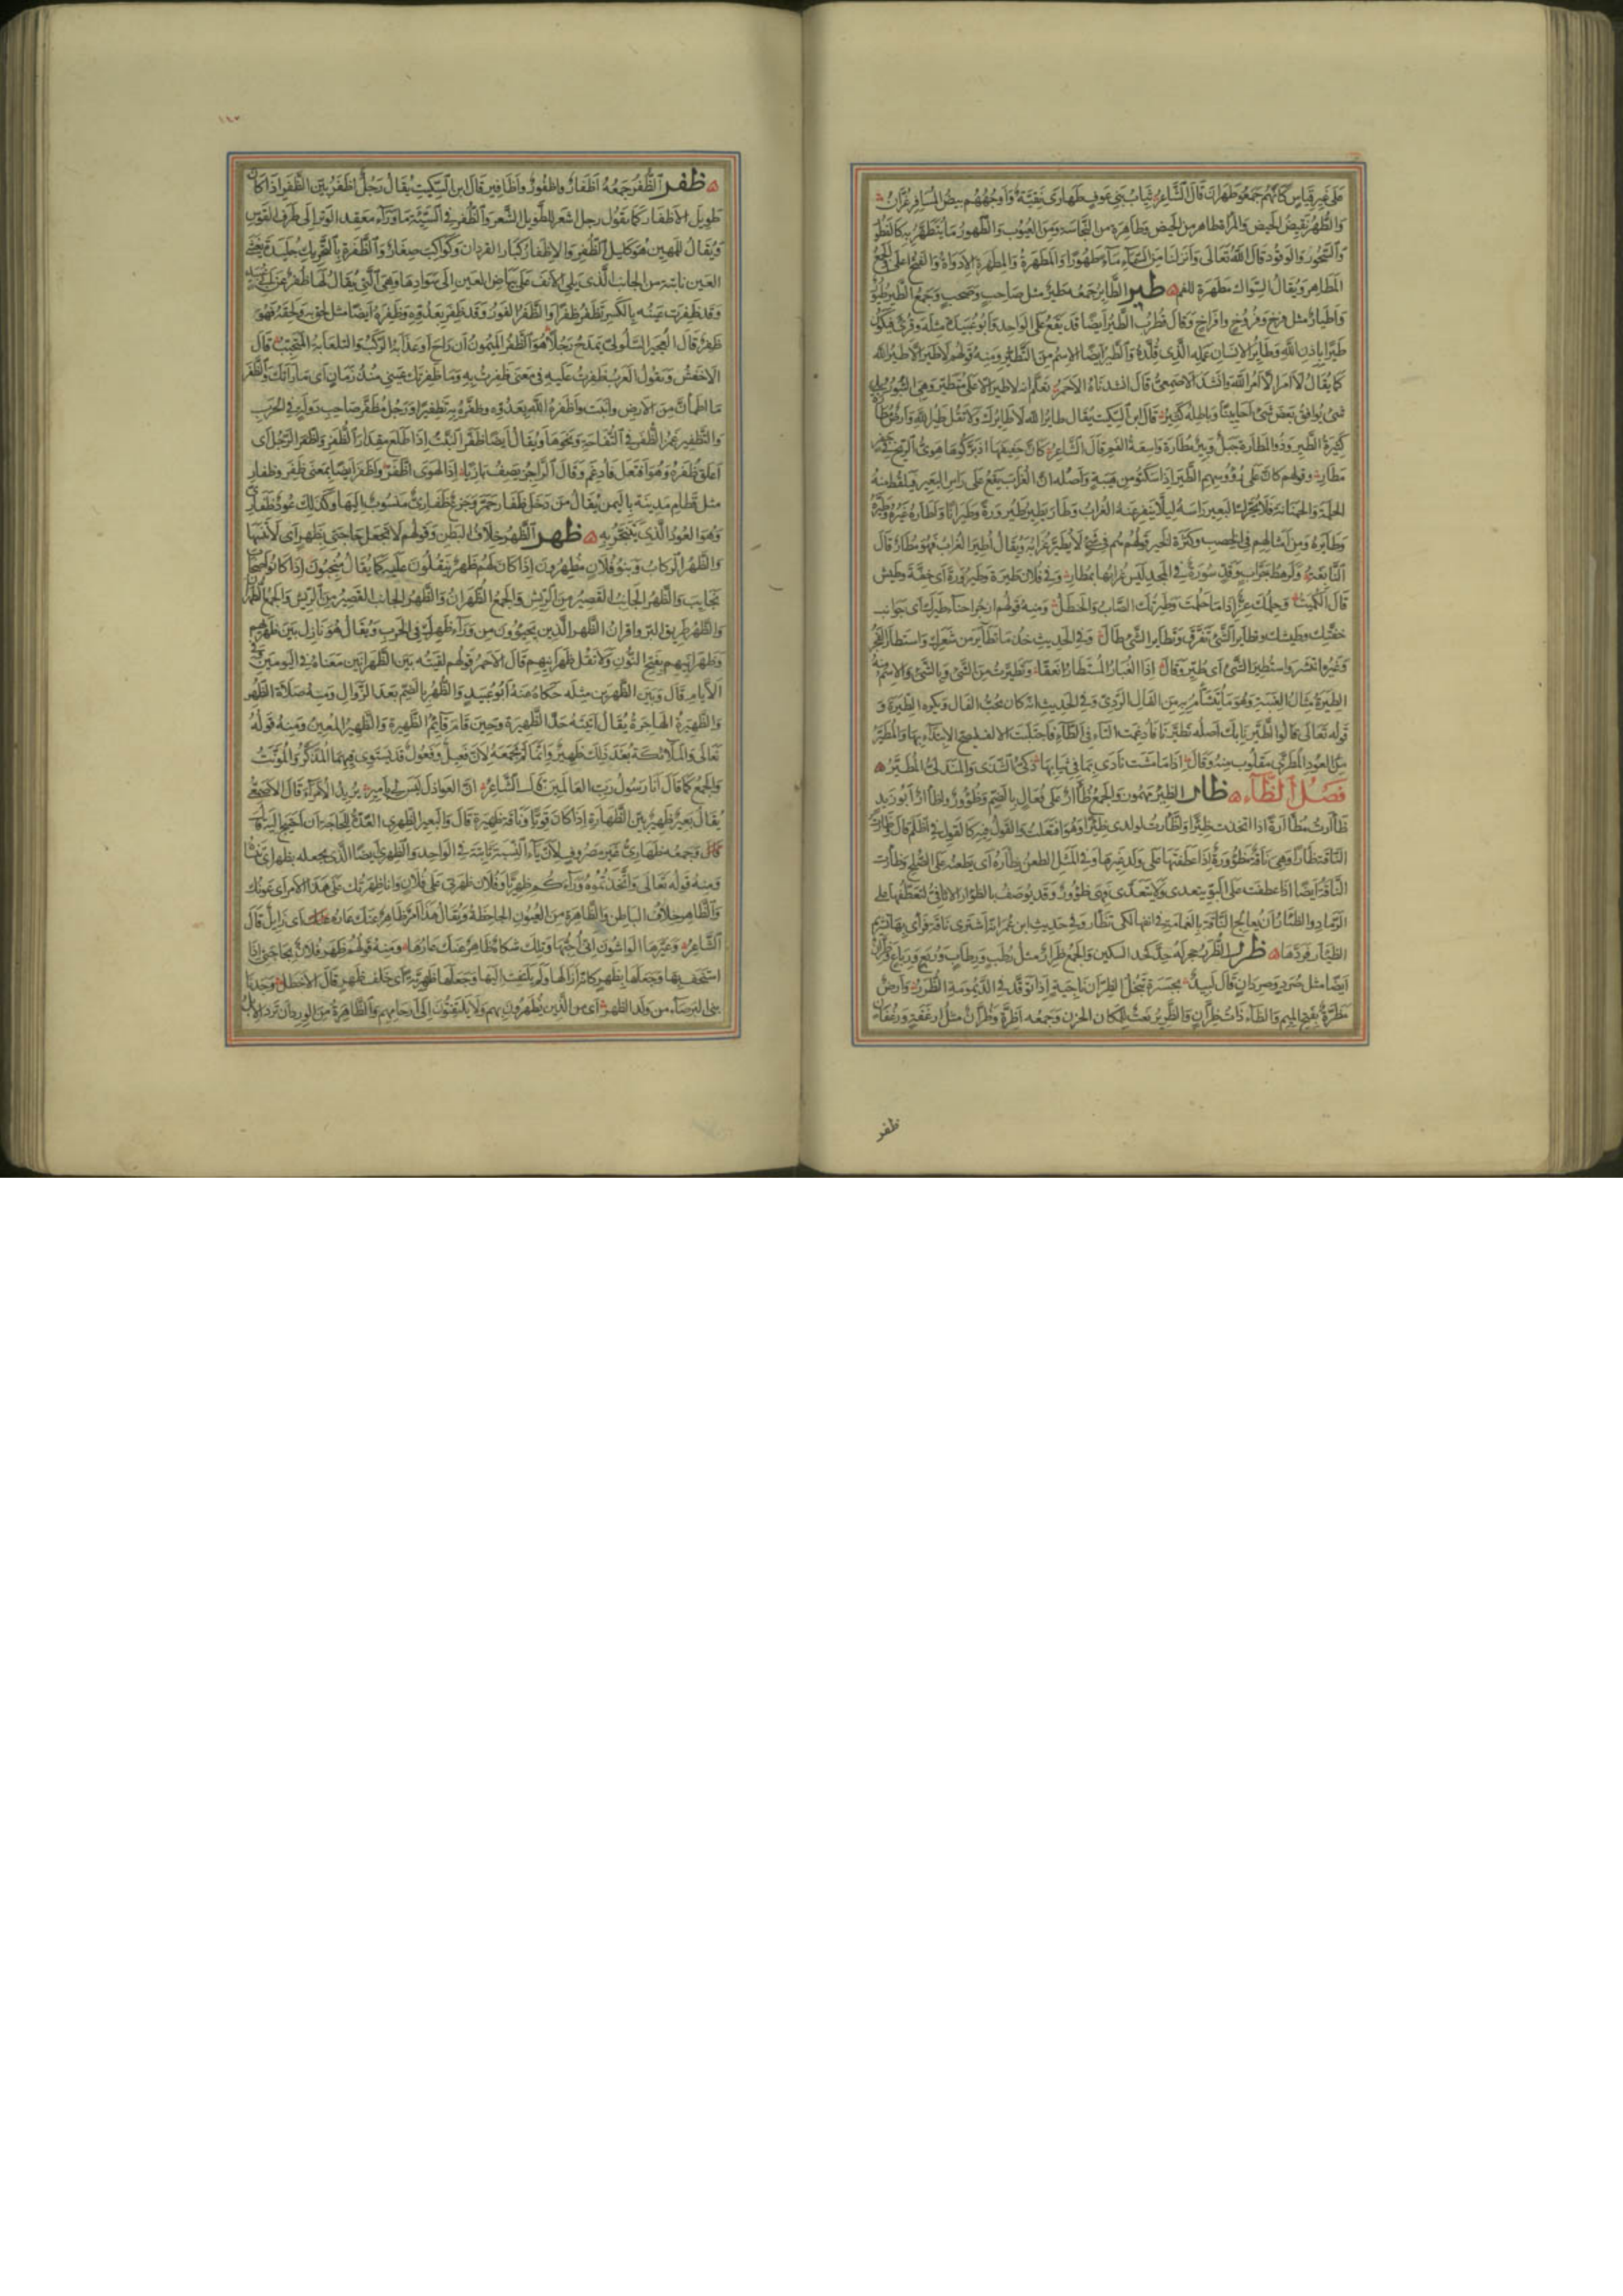 على غير قياس كانهم جمعوا طهران قال الشاعر ثياب بني عوف طهارى نقية واوجههم بيض المسافر غران
والطهر نقيض الحيض والمرأة طاهر من الحيض وطاهرة من النجاسة ومن العيوب والطهور ما يتطهر به كالفطور
والسحور والوقود قال الله تعالى وانزلنا من السماء ماء طهورا والمطهرة والمطهرة الاداوة والفتح اعلى والجمع
المطاهر ويقال السواك مطهرة للفم طير الطاير جمعه طير مثل صاحب وصحب وجمع الطير طيور
واطيار مثل فرخ وفروخ وافراخ وقال قطرب الطير ايضا قد يقع على الواحد وابو عبيدة مثله وقرئ فيكون
طيرا باذن الله وطاير الانسان عمله الذي قلده والطير ايضا الاسم من التطير ومنه قولهم لا طير الا طير الله
كما يقال لا امر الا امر الله وانشد الاصمعي قال انشدناه الاحمر تعلم انه لا طير الا على متطير وهي الثبور بلى
شئ يوافق بعض شئ احايينا وباطله كثير قال ابن السكيت يقال طاير الله لا طايرك ولا تقل طير الله وارض مطارة
كثيرة الطير وذو المطارة جبل وبير مطارة واسعة الفم قال الشاعر كان حفيفها اذ بركوها هوى الريح في
مطار وقولهم كان على رؤوسهم الطير اذا سكنوا من هيبة واصله ان الغراب يقع على راس البعير فيلقط منه
الحلمة والحمنانة فلا يحرك البعير راسه ليلا ينفر عنه الغراب وطار يطير طيرورة وطيرانا واطاره غيره وطيره
وطايره ومن امثالهم في الخصب وكثرة الخير قولهم هم في شئ لا يطير غرابه ويقال اطير الغراب فهو مطار قال
النابغة ولرهط حراب وقد سورة في المجد ليس غرابها بمطار وفي فلان طيرة وطيرورة اى خفة وطيش
قال الكميت وحلمك عز اذا ما حلمت وطيرتك الصاب والحنظل ومنه قولهم ازجر احناء طيرك اى جوانب
خفتك وطيشك وتطاير الشئ تفرق وتطاير الشئ طال وفي الحديث خذ ما تطاير من شعرك واستطار الفجر
وغيره انتشر واستطير الشئ اى طير وقال اذا الغبار المستطار انعقا وتطيرت من الشئ وبالشئ والاسم منه
الطيرة مثال العنبة وهو ما يتشأم به من الفال الردئ وفي الحديث انه كان يحب الفال ويكره الطيرة و
قوله تعالى قالوا اطيرنا بك اصله تطيرنا فادغمت التاء في الطاء فاجتلبت الالف ليصح الابتداء بها والمطير
من العود المطرى مقلوب منه وقال اذا ما مشت نادى بما في ثيابها ذكى الشذى والمندلى المطير
فصل الظاء ظار الظئر مهموز والجمع ظؤار على فعال بالضم وظؤور واظآر ابو زيد
ظأرت مظآرة اذا اتخذت ظئرا واظأرت لولدى ظئرا وهو افتعلت والقول فيه كالقول في اظلم قال
الناقة ظأرا وهي ناقة مظؤورة اذا عطفتها على ولد غيرها وفي المثل الطعن يظأره اى يعطفه على الصلح وظأرت
الناقة ايضا اذا عطفت على البو يتعدى ولا يتعدى فهي ظؤور وقد يوصف بالظؤار الاثافي لتعطفها على
الرماد والظئار ان يعالج الناقة بالغمامة في انفها لكى تظأر وفي حديث ابن عمر انه اشترى ناقة فرأى بها تشريم
الظئار فردها ظرر الظرر حجر له حد كحد السكين والجمع ظرار مثل رطب ورطاب وربع ورباع وظران
ايضا مثل صرد وصردان قال لبيد بجسرة تنجل الظران ناجية اذا توقد في الديمومة الظرر وارض
مظرة بفتح الميم والظاء ذات ظران والظرير نعت للمكان الحزن وجمعه اظرة وظران مثل ارغفة ورغفان
ظفر
١٤٧
ظفر الظفر جمعه اظفار واظفور واظافير قال ابن السكيت يقال رجل اظفر بين الظفر اذا كان
طويل الاظفار كما يقول رجل اشعر للطويل الشعر والظفر في السية ما وراء معقد الوتر الى طرف القوس
ويقال للمهين هو كليل الظفر والاظفار كبار القردان وكواكب صغار والظفرة بالتحريك جليدة يغشى
العين نابتة من الجانب الذي يلى الانف على بياض العين الى سوادها وهي التي يقال لها ظفر عن
وقد ظفرت عينه بالكسر تظفر ظفرا والظفر الفوز وقد ظفر بعدوه وظفره ايضا مثل لحق به ولحقه فهو
ظفر قال العجير السلولى يمدح رجلا هو الظفر الميمون ان راح او غدا به الركب والتلعابة المتحبب قال
الاخفش وتقول العرب ظفرت عليه في معنى ظفرت به وما ظفرتك عيني منذ زمان اى ما رأتك والظفر
ما اطمأن من الارض وانبت واظفره الله بعدوه وظفره به تظفيرا ورجل مظفر صاحب دولة في الحرب
والتظفير غمز الظفر في التفاحة ونحوها ويقال ايضا ظفر النبت اذا طلع مقدار الظفر واظفر الرجل اى
اعلق ظفره وهو افتعل فادغم وقال الراجز يصف بازيا اذا الهوى اظفر واظفر ايضا بمعنى ظفر وظفار
مثل قطام مدينة باليمن يقال من دخل ظفار حمر وجزع ظفارى منسوب اليها وكذلك عود ظفارى
وهو العود الذي يتبخر به ظهر الظهر خلاف البطن وقولهم لا تجعل حاجتى بظهر اى لا تنسها
والظهر الركاب وبنو فلان مظهرون اذا كان لهم ظهر ينقلون عليه كما يقال منجبون اذا كانوا اصحاب
نجايب والظهر الجانب القصير من الريش والجمع الظهران والظهر الجانب القصير من الريش والجمع الظهران
والظهر طريق البر واقران الظهر الذين يجيؤون من وراء ظهرك في الحرب ويقال هو نازل بين ظهريهم
وظهرانيهم بفتح النون ولا تقل ظهرانيهم قال الاحمر قولهم لقيته بين الظهرانين معناه في اليومين
الايام قال وبين الظهرين مثله حكاه عنه ابو عبيد والظهر بالضم بعد الزوال ومنه صلاة الظهر
والظهيرة الهاجرة يقال اتيته حد الظهيرة وحين قام قائم الظهيرة والظهير المعين ومنه قوله
تعالى والملائكة بعد ذلك ظهير وانما لم يجمعه لان فعيل وفعول قد يستوى فيهما المذكر والمؤنث
والجمع كما قال انا رسول رب العالمين قال الشاعر ان العواذل ليس لي بامير يريد الامراء قال الاصمعي
يقال بعير ظهير بين الظهارة اذا كان قويا وناقة ظهيرة قال والبعير الظهرى العدة للحاجة ان احتيج اليه
قال وجمعه ظهارى غير مصروف لان ياء النسبة ثابتة في الواحد والظهرى ايضا الذي يجعله بظهر اى تنساه
ومنه قوله تعالى واتخذتموه وراءكم ظهريا وفلان ظهرتى على فلان وانا ظهرتك على هذا الامر اى عونك
والظاهر خلاف الباطن والظاهرة من العيون الجاحظة ويقال هذا امر ظاهر عنك عاره اى زايل قال
الشاعر وعيرها الواشون انى احبها وتلك شكاة ظاهر عنك عارها ومنه قولهم ظهر فلان بحاجتى اذا
استخف بها وجعلها بظهر كانه ازالها ولم يلتفت اليها وجعلها ظهرية اى خلف ظهر قال الاخطل وجدنا
بنى البرصاء من ولد الظهر اى من الذين يظهرون بهم ولا يلتفتون الى ارحامهم والظاهرة من الورد ان ترد الابل